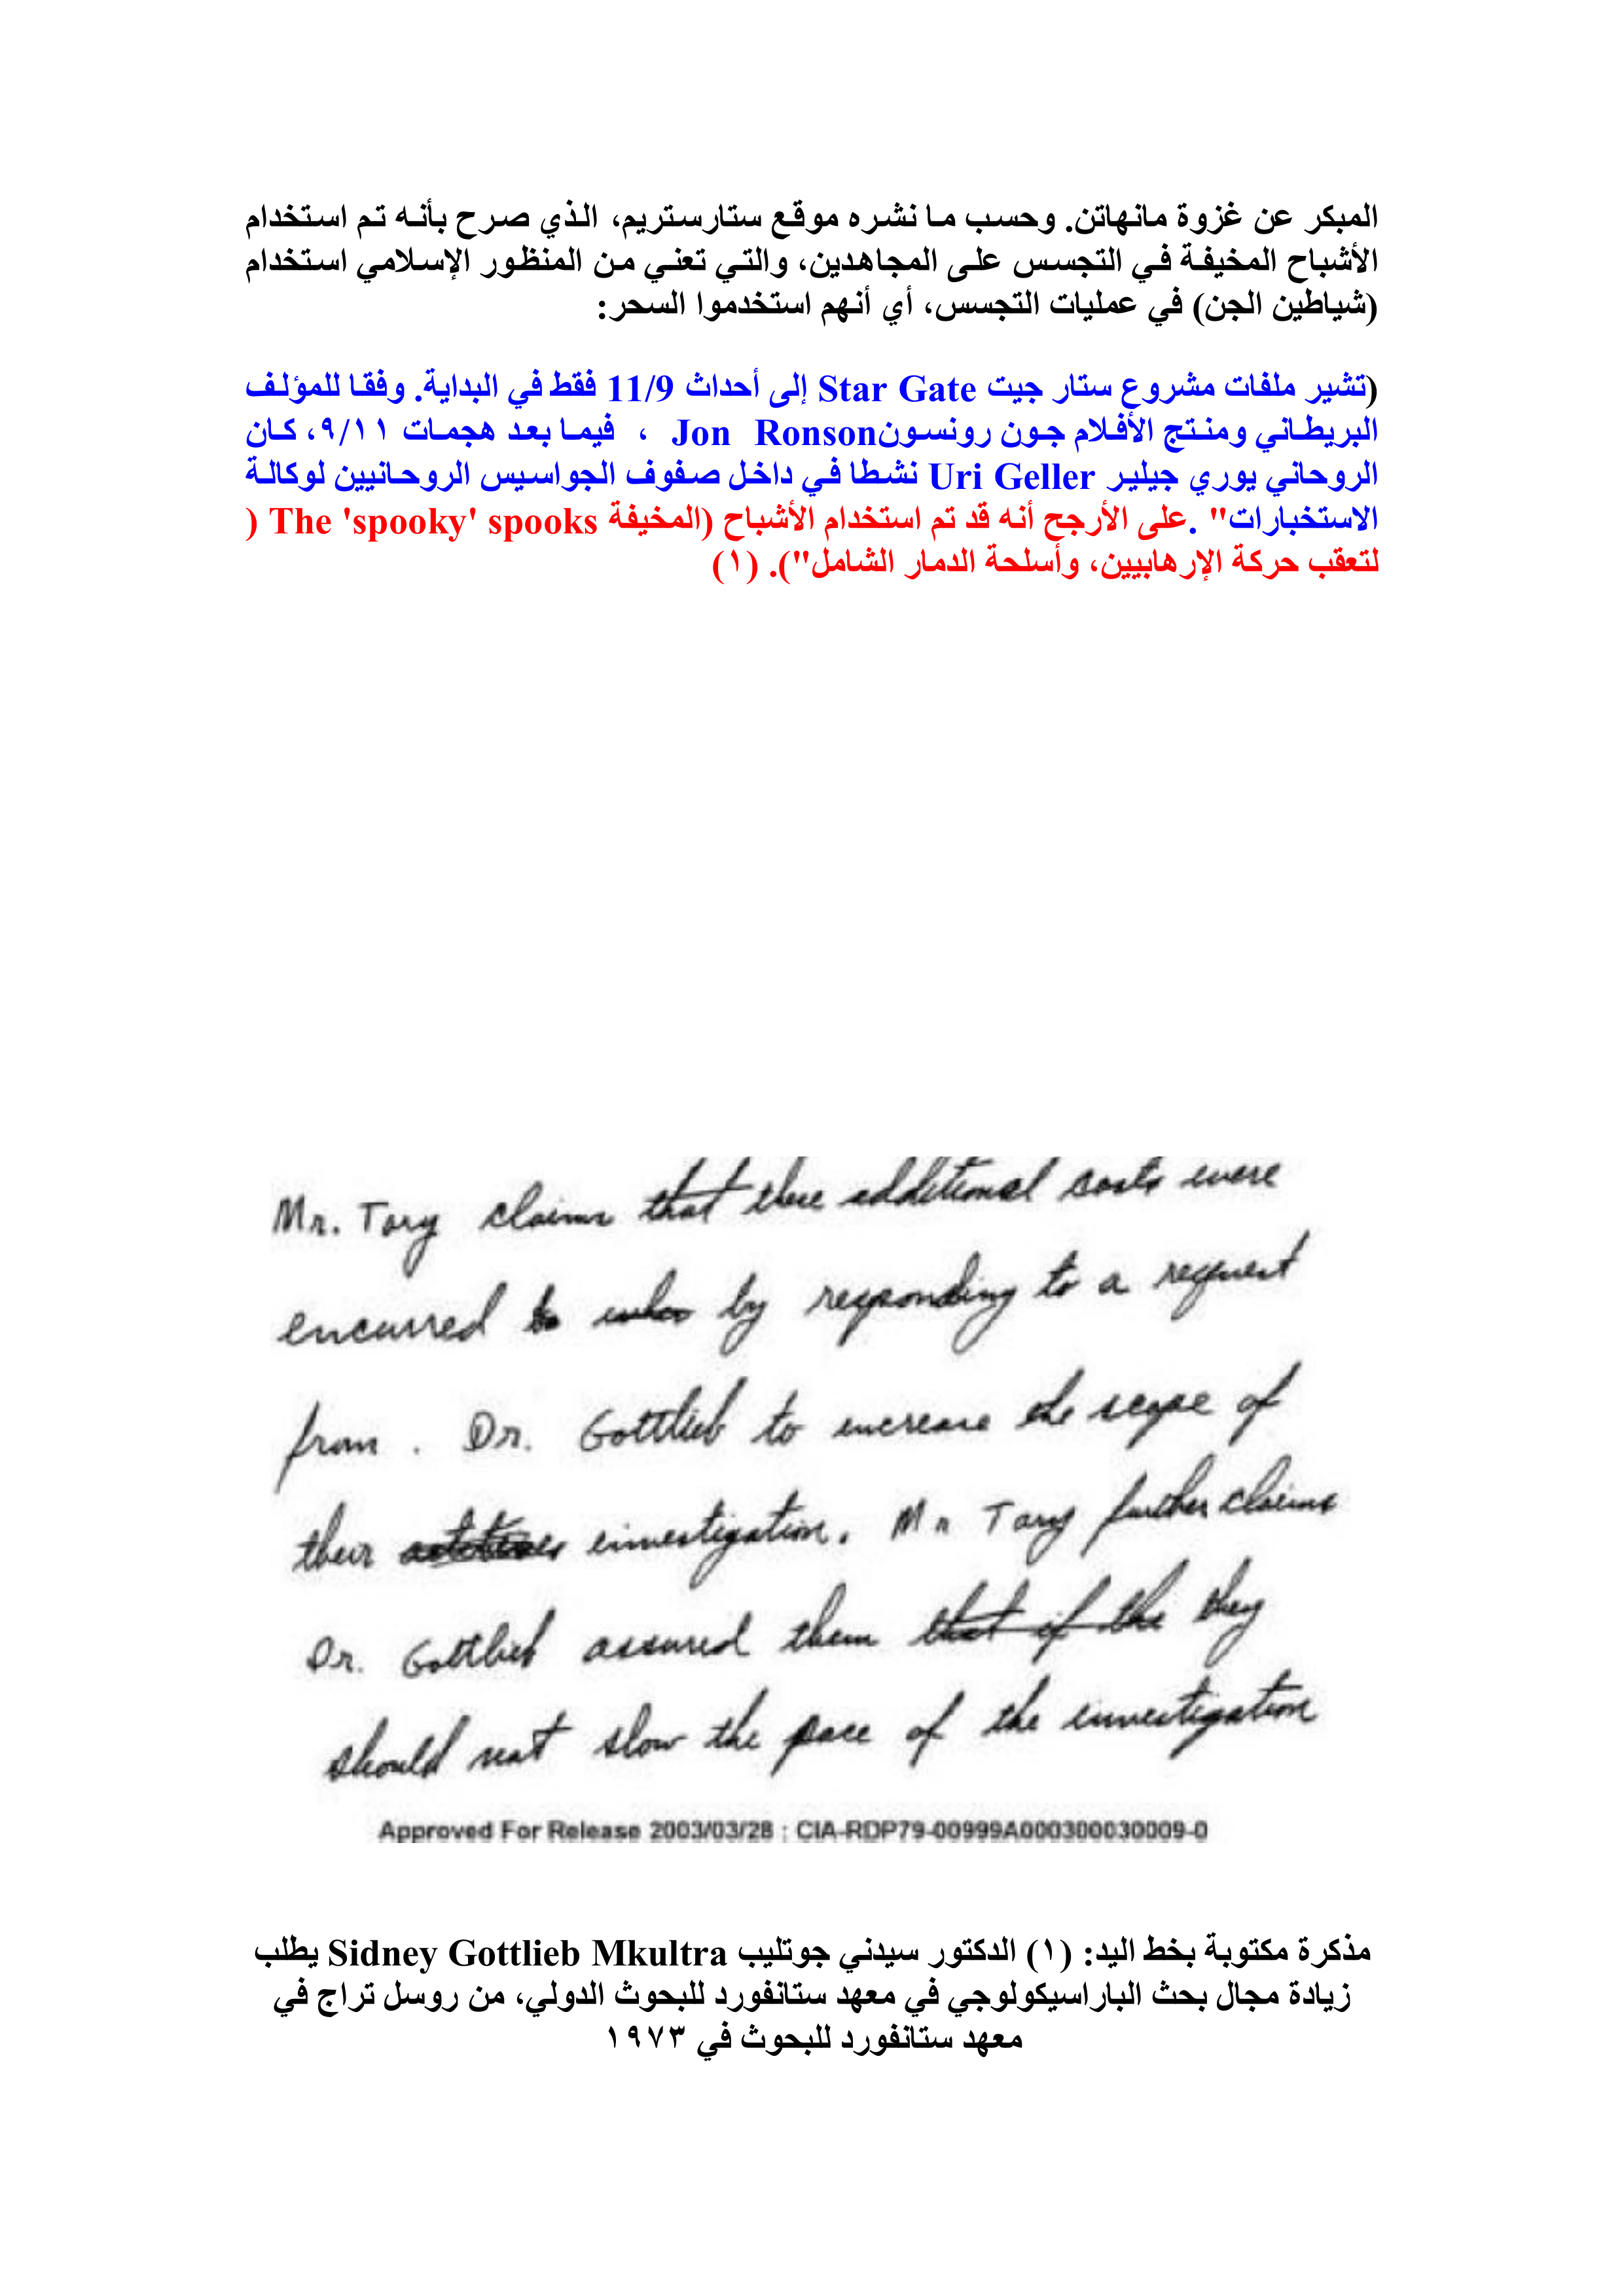 المبكر عن غزوة مانهاتن. وحسب ما نشره موقع ستارستريم، الذي صرح بأنه تم استخدام
الأشباح المخيفة في التجسس على المجاهدين، والتي تعني من المنظور الإسلامي استخدام
(شياطين الجن) في عمليات التجسس، أي أنهم استخدموا السحر:
(تشير ملفات مشروع ستار جيت Star Gate إلى أحداث 11/9 فقط في البداية. وفقا للمؤلف
البريطاني ومنتج الأفلام جون رونسونJon Ronson ، فيما بعد هجمات ٩/١١، كان
الروحاني يوري جيلير Uri Geller نشطا في داخل صفوف الجواسيس الروحانيين لوكالة
الاستخبارات" .على الأرجح أنه قد تم استخدام الأشباح (المخيفة The 'spooky' spooks )
لتعقب حركة الإرهابيين، وأسلحة الدمار الشامل"). (١)
Mr. Tary claims that these additional costs were
encurred by responding to a request
from. Dr. Gottlieb to increase the scope of
their investigation. Mr Tary further claims
Dr. Gottlieb assured them that if the they
should not slow the pace of the investigation
Approved For Release 2003/03/28 : CIA-RDP79-00999A000300030009-0
مذكرة مكتوبة بخط اليد: (١) الدكتور سيدني جوتليب Sidney Gottlieb Mkultra يطلب
زيادة مجال بحث الباراسيكولوجي في معهد ستانفورد للبحوث الدولي، من روسل تراج في
معهد ستانفورد للبحوث في ١٩٧٣